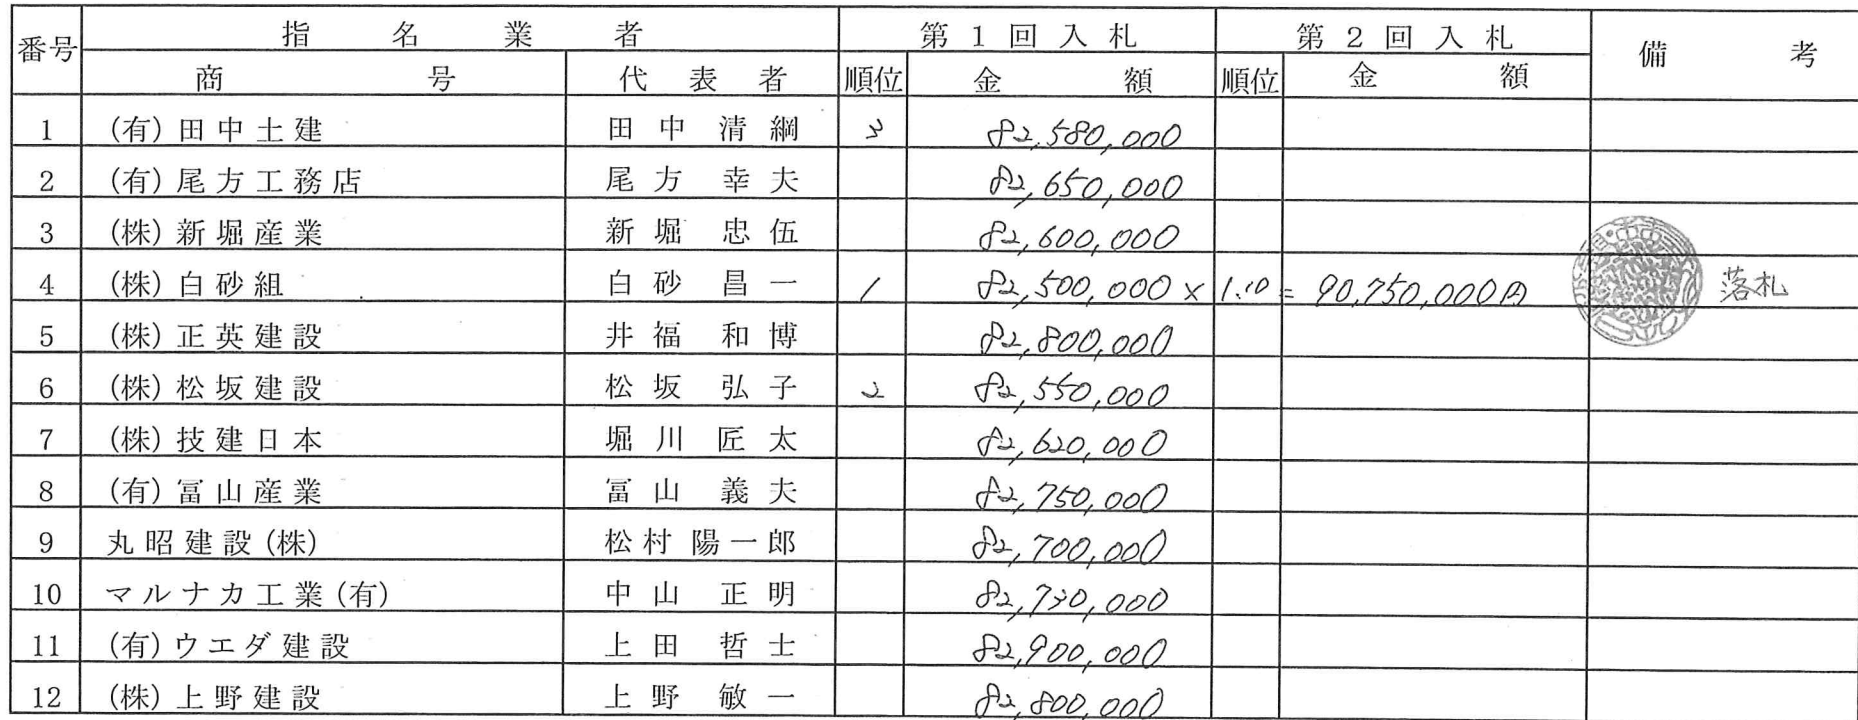 番号 指名業者 第1回入札 第2回入札 備考
商号 代表者 順位 金額 順位 金額
1 (有)田中土建 田中清綱 3 82,580,000
2 (有)尾方工務店 尾方幸夫 82,650,000
3 (株)新堀産業 新堀忠伍 82,600,000
4 (株)白砂組 白砂昌一 1 82,500,000 × 1.10 = 90,750,000円 落札
5 (株)正英建設 井福和博 82,800,000
6 (株)松坂建設 松坂弘子 2 82,550,000
7 (株)技建日本 堀川匠太 82,620,000
8 (有)冨山産業 冨山義夫 82,750,000
9 丸昭建設(株) 松村陽一郎 82,700,000
10 マルナカ工業(有) 中山正明 82,730,000
11 (有)ウエダ建設 上田哲士 82,900,000
12 (株)上野建設 上野敏一 82,800,000